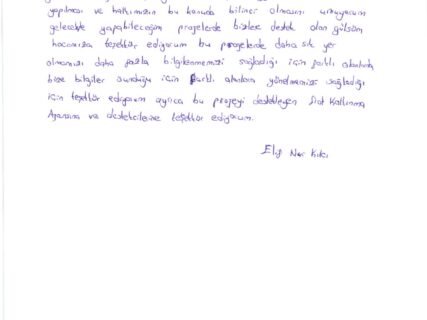 yapılması ve halkımızın bu konuda bilinçli olmasını umuyorum
gelecekte yapabileceğim projelerde bizlere destek olan gülsüm
hocamıza teşekkür ediyorum bu projelerde daha sık yer
olmamızı daha fazla bilgilenmemizi sağladığı için farklı alanlarda
bize bilgiler sunduğu için farklı alanlara yönelmemizi sağladığı
için teşekkür ediyorum ayrıca bu projeyi destekleyen Kalkınma
Ajansına ve destekcilerine teşekkür ediyorum.
Elif Nur